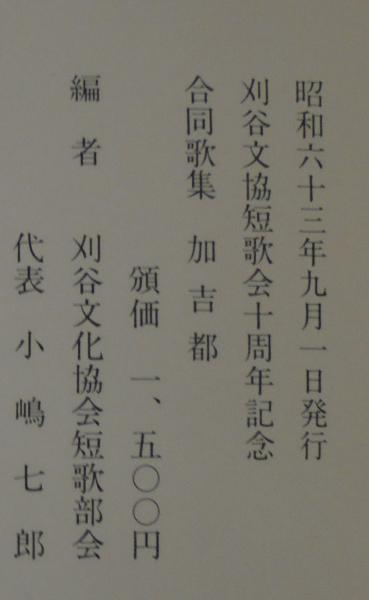 昭和六十三年九月一日発行
刈谷文協短歌会十周年記念
合同歌集 加吉都
頒価 一、五〇〇円
編者 刈谷文化協会短歌部会
代表 小嶋七郎